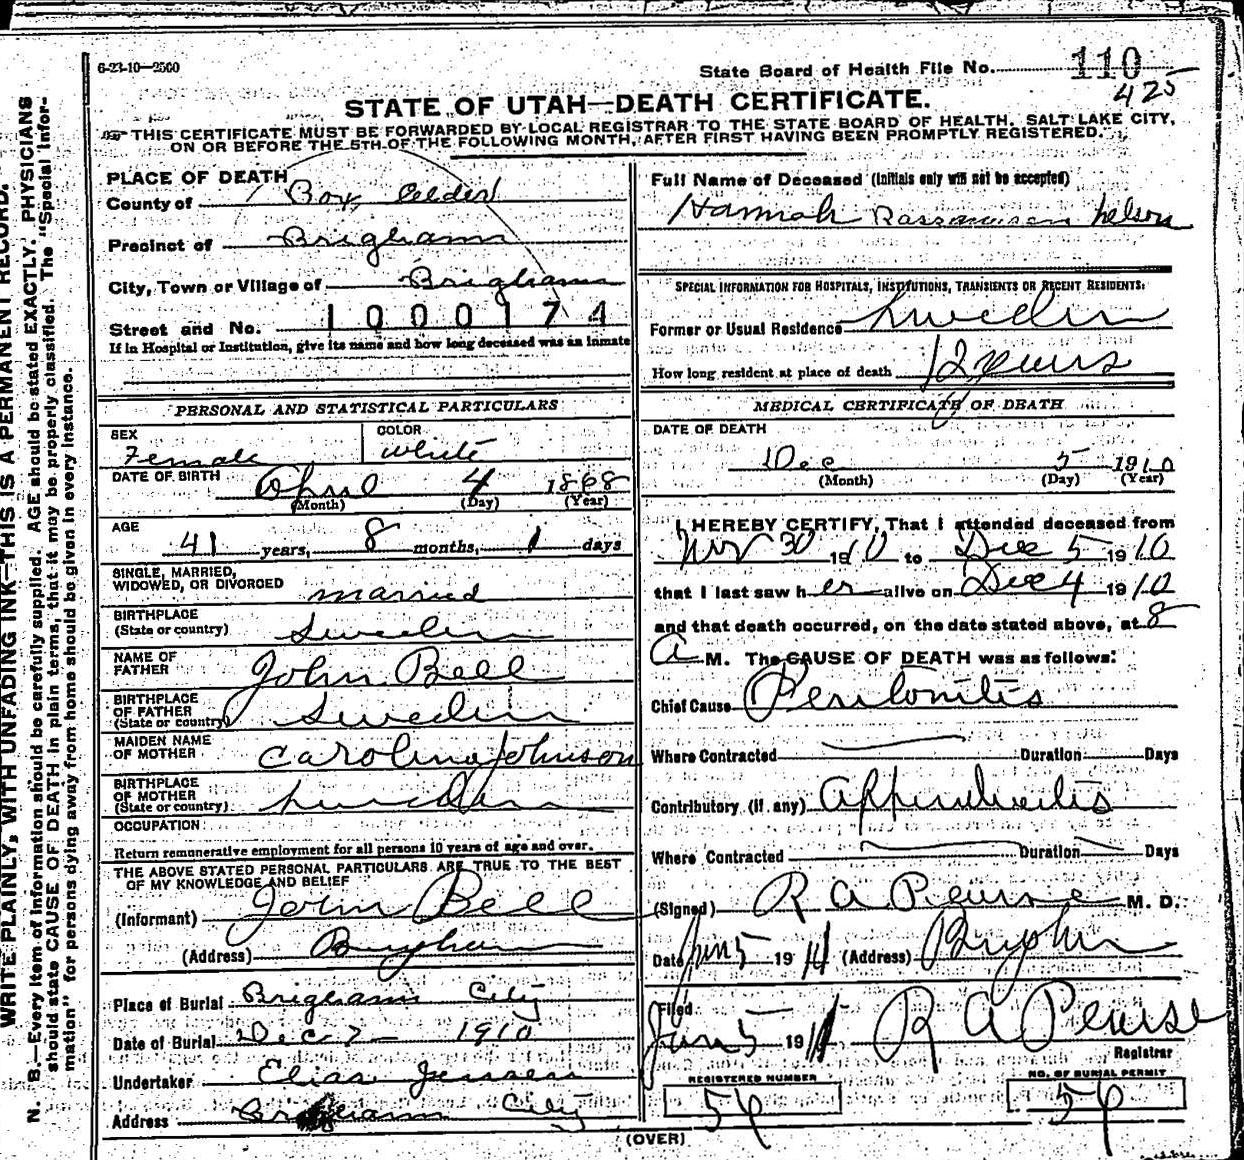 6-23-10—2500
State Board of Health File No. 110
425
STATE OF UTAH—DEATH CERTIFICATE.
THIS CERTIFICATE MUST BE FORWARDED BY LOCAL REGISTRAR TO THE STATE BOARD OF HEALTH, SALT LAKE CITY,
ON OR BEFORE THE 5TH OF THE FOLLOWING MONTH, AFTER FIRST HAVING BEEN PROMPTLY REGISTERED.
WRITE PLAINLY, WITH UNFADING INK—THIS IS A PERMANENT RECORD.
N. B.—Every item of information should be carefully supplied. AGE should be stated EXACTLY. PHYSICIANS
should state CAUSE OF DEATH in plain terms, that it may be properly classified. The "Special Infor-
mation" for persons dying away from home should be given in every instance.
PLACE OF DEATH
County of Box Elder
Precinct of Brigham
City, Town or Village of Brigham
Street and No. 1000174
If in Hospital or Institution, give its name and how long deceased was an inmate
PERSONAL AND STATISTICAL PARTICULARS
SEX
Female
COLOR
White
DATE OF BIRTH April 4 1868
(Month) (Day) (Year)
AGE
41 years, 8 months, 1 days
SINGLE, MARRIED,
WIDOWED, OR DIVORCED married
BIRTHPLACE
(State or country) Sweden
NAME OF
FATHER John Bell
BIRTHPLACE
OF FATHER
(State or country) Sweden
MAIDEN NAME
OF MOTHER Carolina Johnson
BIRTHPLACE
OF MOTHER
(State or country) Sweden
OCCUPATION
Return remunerative employment for all persons 10 years of age and over.
THE ABOVE STATED PERSONAL PARTICULARS ARE TRUE TO THE BEST
OF MY KNOWLEDGE AND BELIEF
(Informant) John Bell
(Address) Brigham
Place of Burial Brigham City
Date of Burial Dec 7 1910
Undertaker Elias Jensen
Address Brigham City
Full Name of Deceased (Initials only will not be accepted)
Hannah Rassmussen Nelson
SPECIAL INFORMATION FOR HOSPITALS, INSTITUTIONS, TRANSIENTS OR RECENT RESIDENTS:
Former or Usual Residence Sweden
How long resident at place of death 12 years
MEDICAL CERTIFICATE OF DEATH
DATE OF DEATH
Dec 5 1910
(Month) (Day) (Year)
I HEREBY CERTIFY, That I attended deceased from
Nov 30 1910 to Dec 5 1910
that I last saw her alive on Dec 4 1910
and that death occurred, on the date stated above, at 8
A M. The CAUSE OF DEATH was as follows:
Chief Cause Peritonitis
Where Contracted Duration Days
Contributory (if any) Appendicitis
Where Contracted Duration Days
(Signed) R A Pearse M. D.
Date Jan 5 1911 (Address) Brigham
Filed
Jan 5 1911 R A Pearse
Registrar
REGISTERED NUMBER
NO. OF BURIAL PERMIT
(OVER)